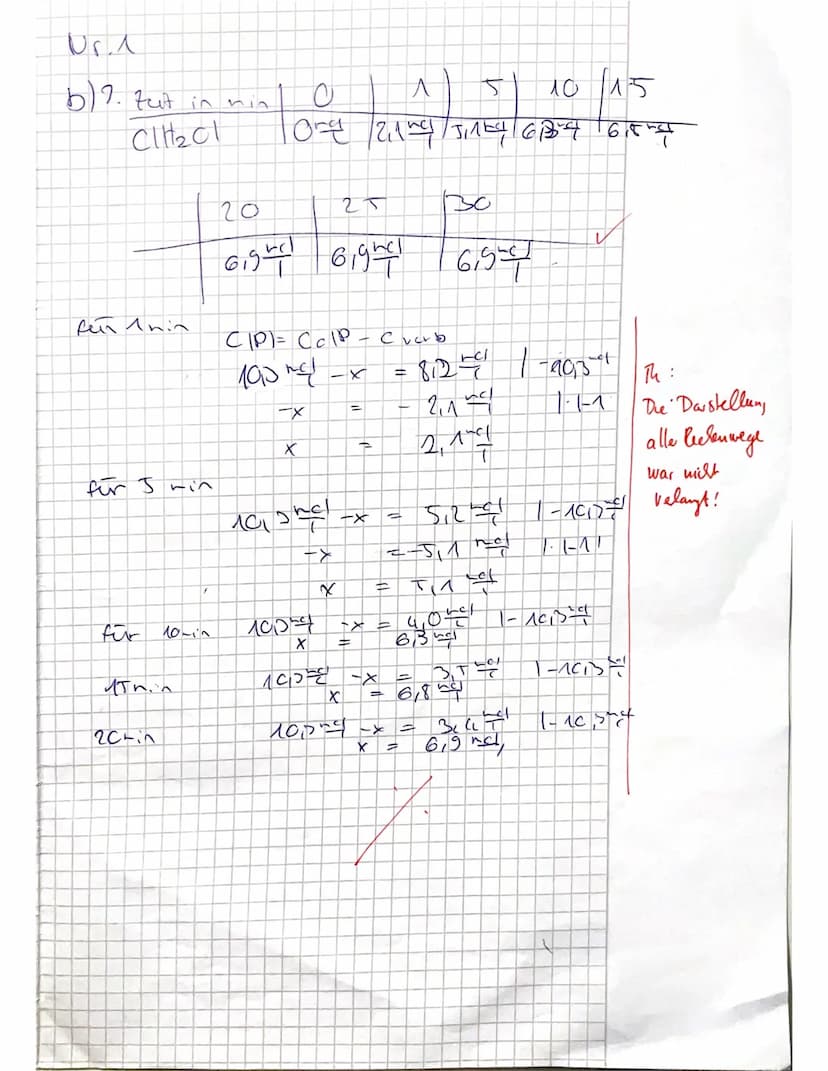 Nr. 1
b) 2. Zeit in min | 0 | 1 | 5 | 10 | 15
C(H₂Cl | 0 mol/l | 2,1 mol/l | 5,1 mol/l | 6,3 mol/l | 6,8 mol/l
20 | 25 | 30
6,9 mol/l | 6,9 mol/l | 6,9 mol/l
✓
für 1 min
C(P) = C₀(P - C verb
10,3 mol/l - x = 8,2 mol/l | -10,3 mol/l
-x = - 2,1 mol/l | ·(-1
x = 2,1 mol/l
für 5 min
10,3 mol/l - x = 5,2 mol/l | -10,3 mol/l
-x = -5,1 mol/l | ·(-1)
x = 5,1 mol/l
für 10 min 10,3 mol/l - x = 4,0 mol/l | - 10,3 mol/l
x = 6,3 mol/l
15 min 10,3 mol/l - x = 3,5 mol/l | -10,3 mol/l
x = 6,8 mol/l
20 min 10,3 mol/l - x = 3,4 mol/l | -10,3 mol/l
x = 6,9 mol/l
Die Darstellung
alle Rechenwege
war nicht
verlangt!